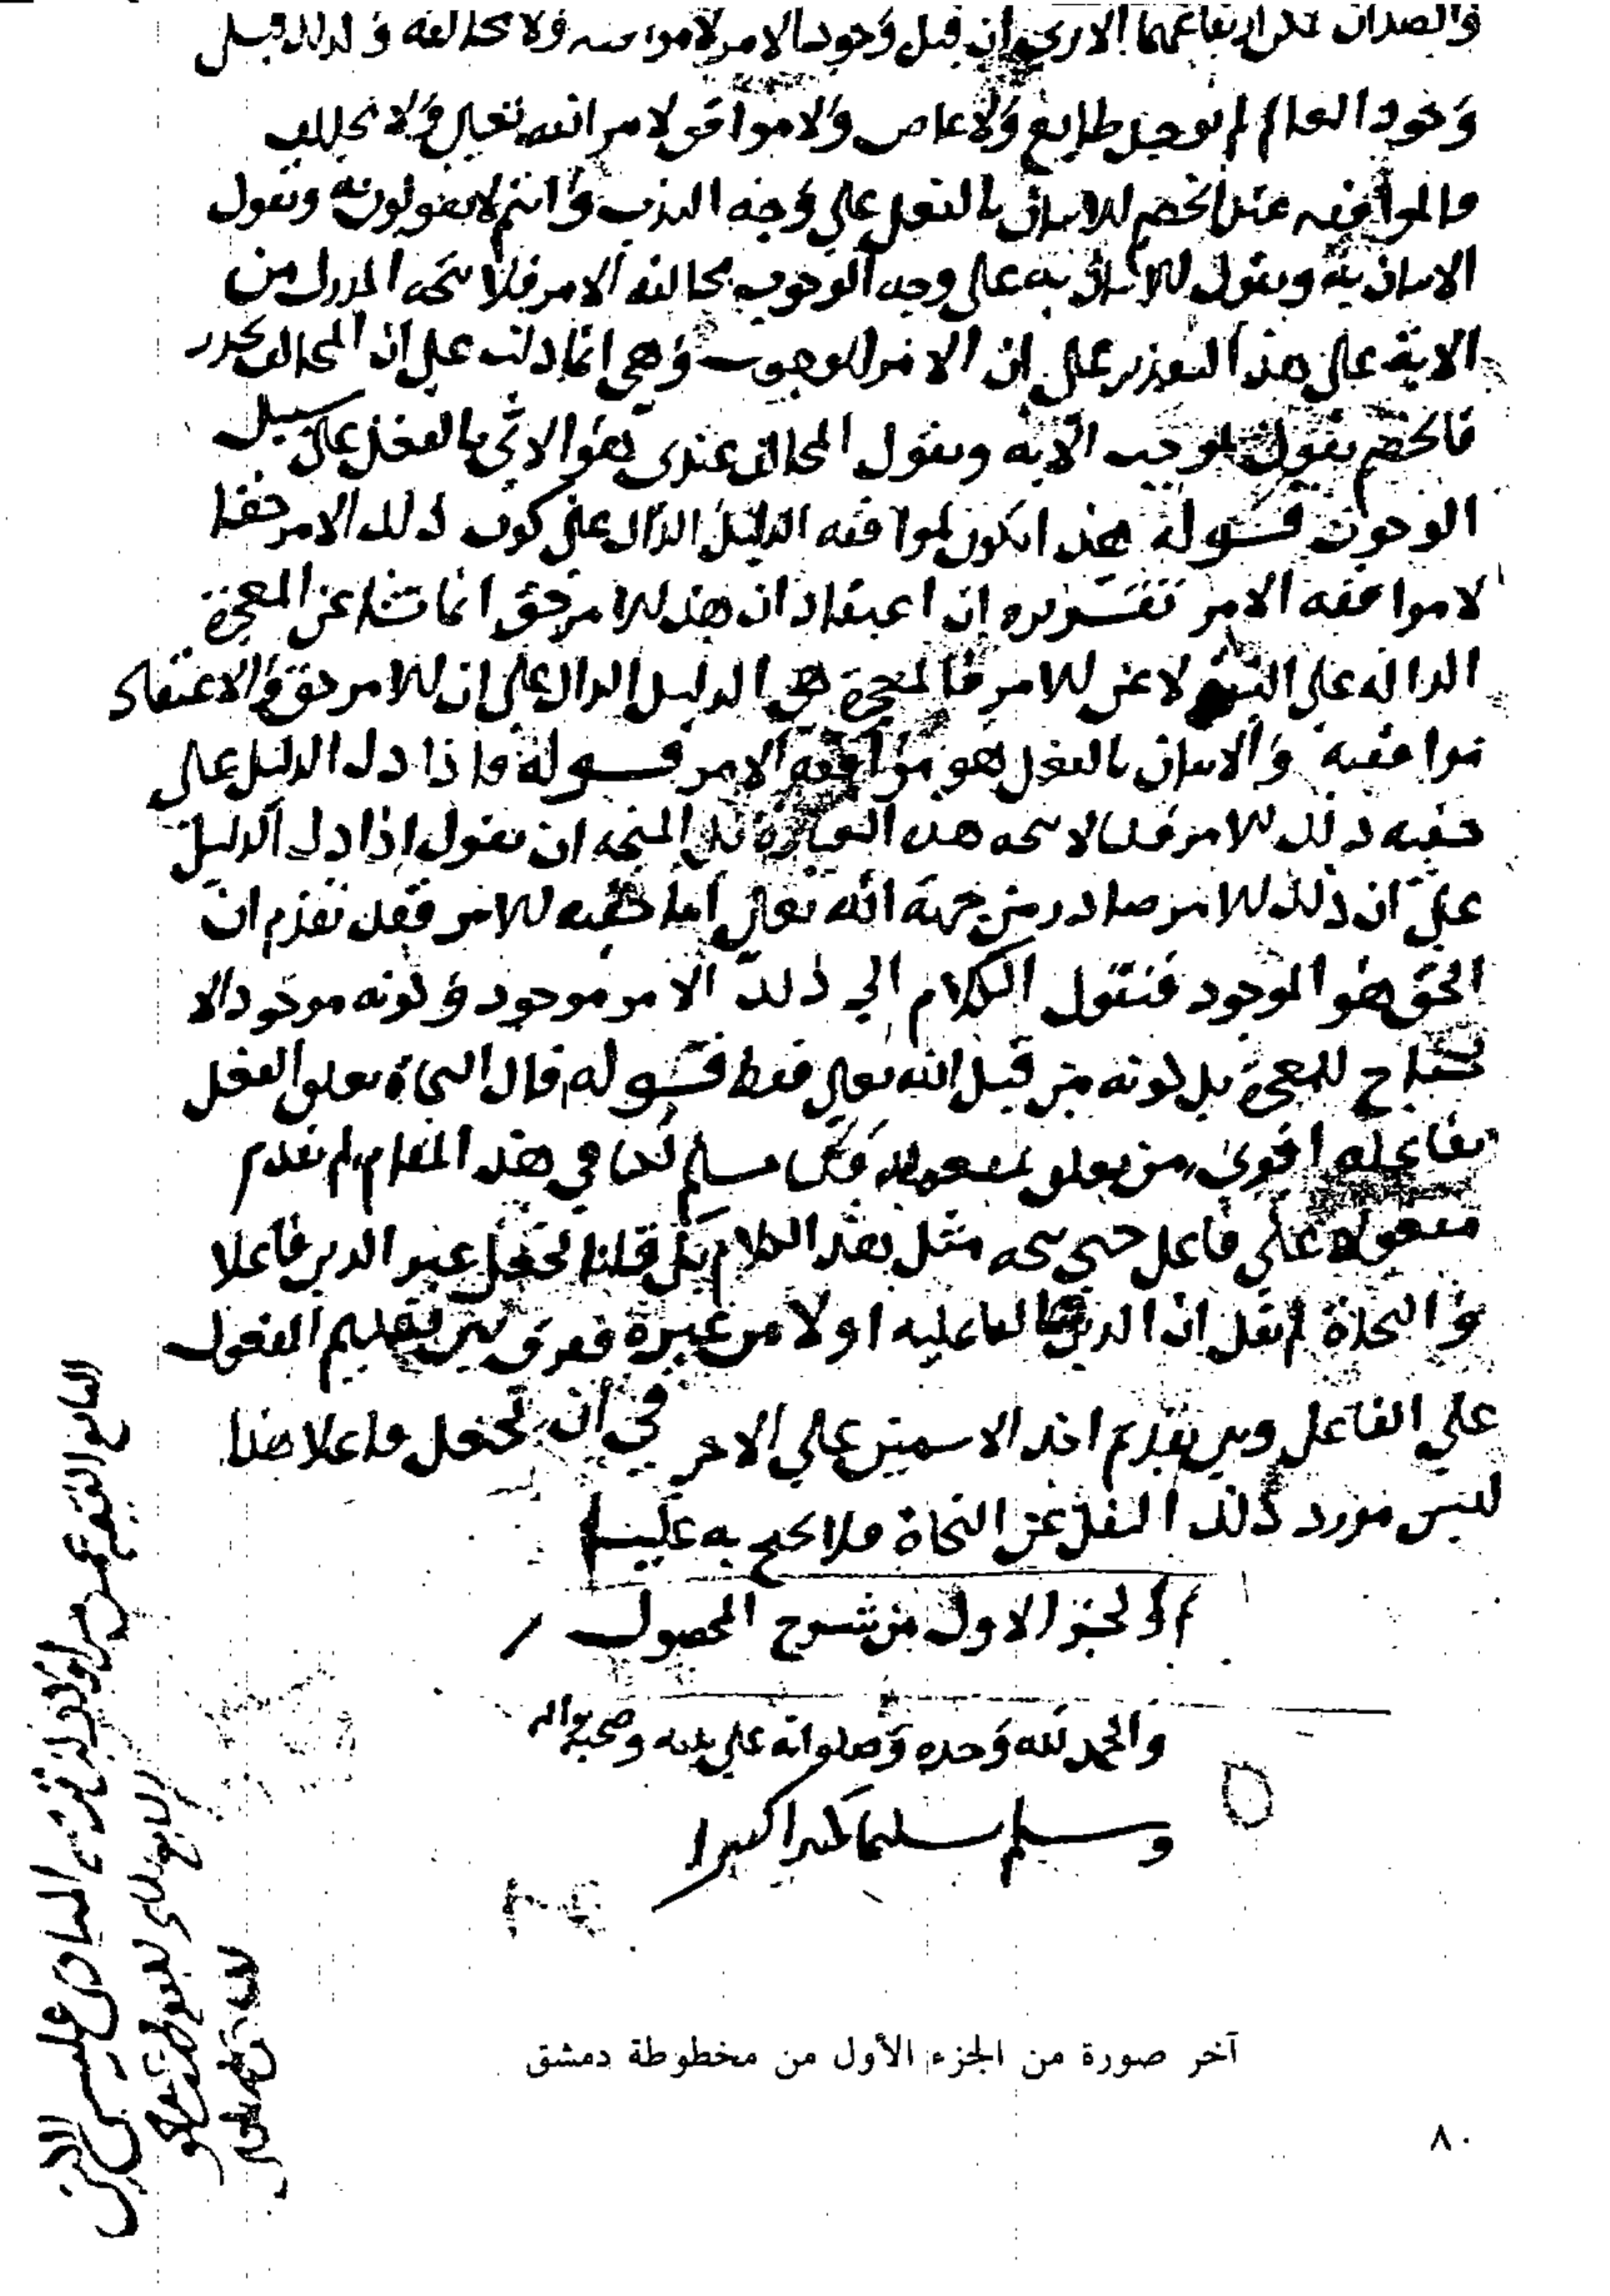 والضدان يمكن ارتفاعهما الا ترى ان قبل وجود الامر لا موافقه ولا مخالفه ولذلك قبل
وجود العالم لم يوجد طايع ولا عاص ولا موافق لامر الله تعالى ولا مخالف
والموافقه عند الخصم الاتيان بالفعل على وجه الندب وانتم لا تقولون به ونقول
الاتيان به ويقول الاتيان به على وجه الوجوب مخالفه الامر فلا يتجه المدرك من
الاية على هذا التقدير على ان الامر للوجوب وهي انما دلت على ان المخالف يحذر
فالخصم يقول بموجب الايه ويقول المخالف عندى هو الاتي بالفعل على سبيل
الوجوب قوله هذا يكون لموافقه الدليل الدال على كون ذلك الامر حقا
لا موافقه الامر تقريره ان اعتقاد ان هذا الامر حق انما نشا عن المعجزة
الداله على لا عن الامر فالمعجزة هي الدليل الدال على ان الامر حق والاعتقاد
موافقته والاتيان بالفعل هو موافقه الامر قوله واذا دل الدليل على
حقيه ذلك الامر قلنا لا يتجه هذه العبارة بل المتجه ان نقول اذا دل الدليل
على ان ذلك الامر صادر من جهة الله تعالى اما حقيه الامر فقد تقدم ان
الحق هو الموجود فنقول الكلام الى ذلك الامر موجود وكونه موجودا لا
يحتاج للمعجزة بل كونه من قبل الله تعالى فقط قوله قال النحاة تعلق الفعل
بفاعله اقوى من تعلق بمفعوله قلنا مسلم لكنا في هذا المقام لم نقدم
مفعولا على فاعل حتى يتجه مثل هذا الكلام بل قلنا نجعل غير الذين فاعلا
والنحاة لم تقل ان الذين بالفاعليه اولا من غيره ففرق بين تقديم المفعول
على الفاعل وبين تقديم احد الاسمين على الاخر في ان نجعل فاعلا هذا
ليس مورد ذلك النقل عن النحاة فلا يحتج به علينا
تم الجز الاول من شرح المحصول
والحمد لله وحده وصلواته على نبيه وصحبه واله
وسلم تسليما كثيرا كبيرا
آخر صورة من الجزء الأول من مخطوطة دمشق
٨٠